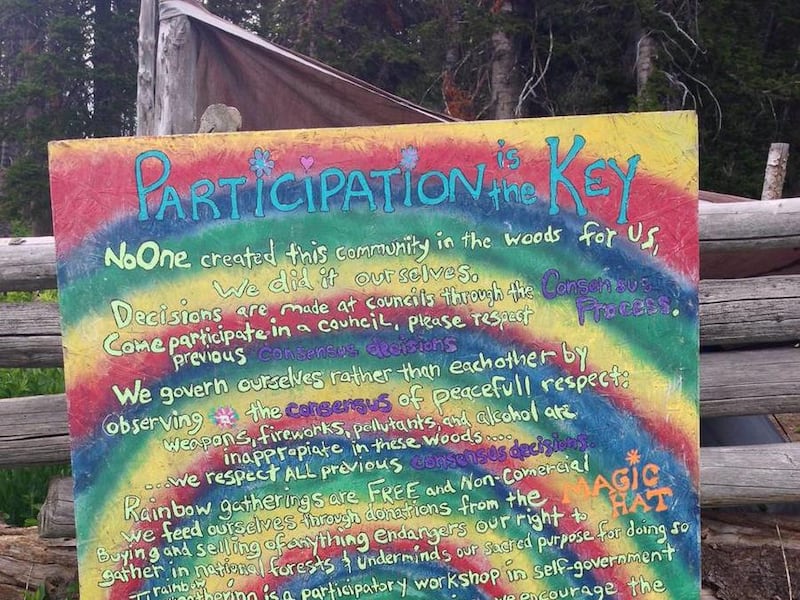 PARTICIPATION is the KEY
NoOne created this community in the woods for us,
We did it ourselves.
Decisions are made at councils through the Consensus Process.
Come participate in a council, please respect
previous consensus decisions
We govern ourselves rather than eachother by
observing the consersus of peacefull respect:
weapons, fireworks, pollutants, and alcohol are
inappropiate in these woods....
...we respect ALL previous consensus decisions.
Rainbow gatherings are FREE and Non-Comercial
we feed ourselves through donations from the MAGIC HAT
Buying and selling of anything endangers our right to
gather in national forests & underminds our sacred purpose for doing so
rainbow
gathering is a participatory workshop in self-government
we encourage the